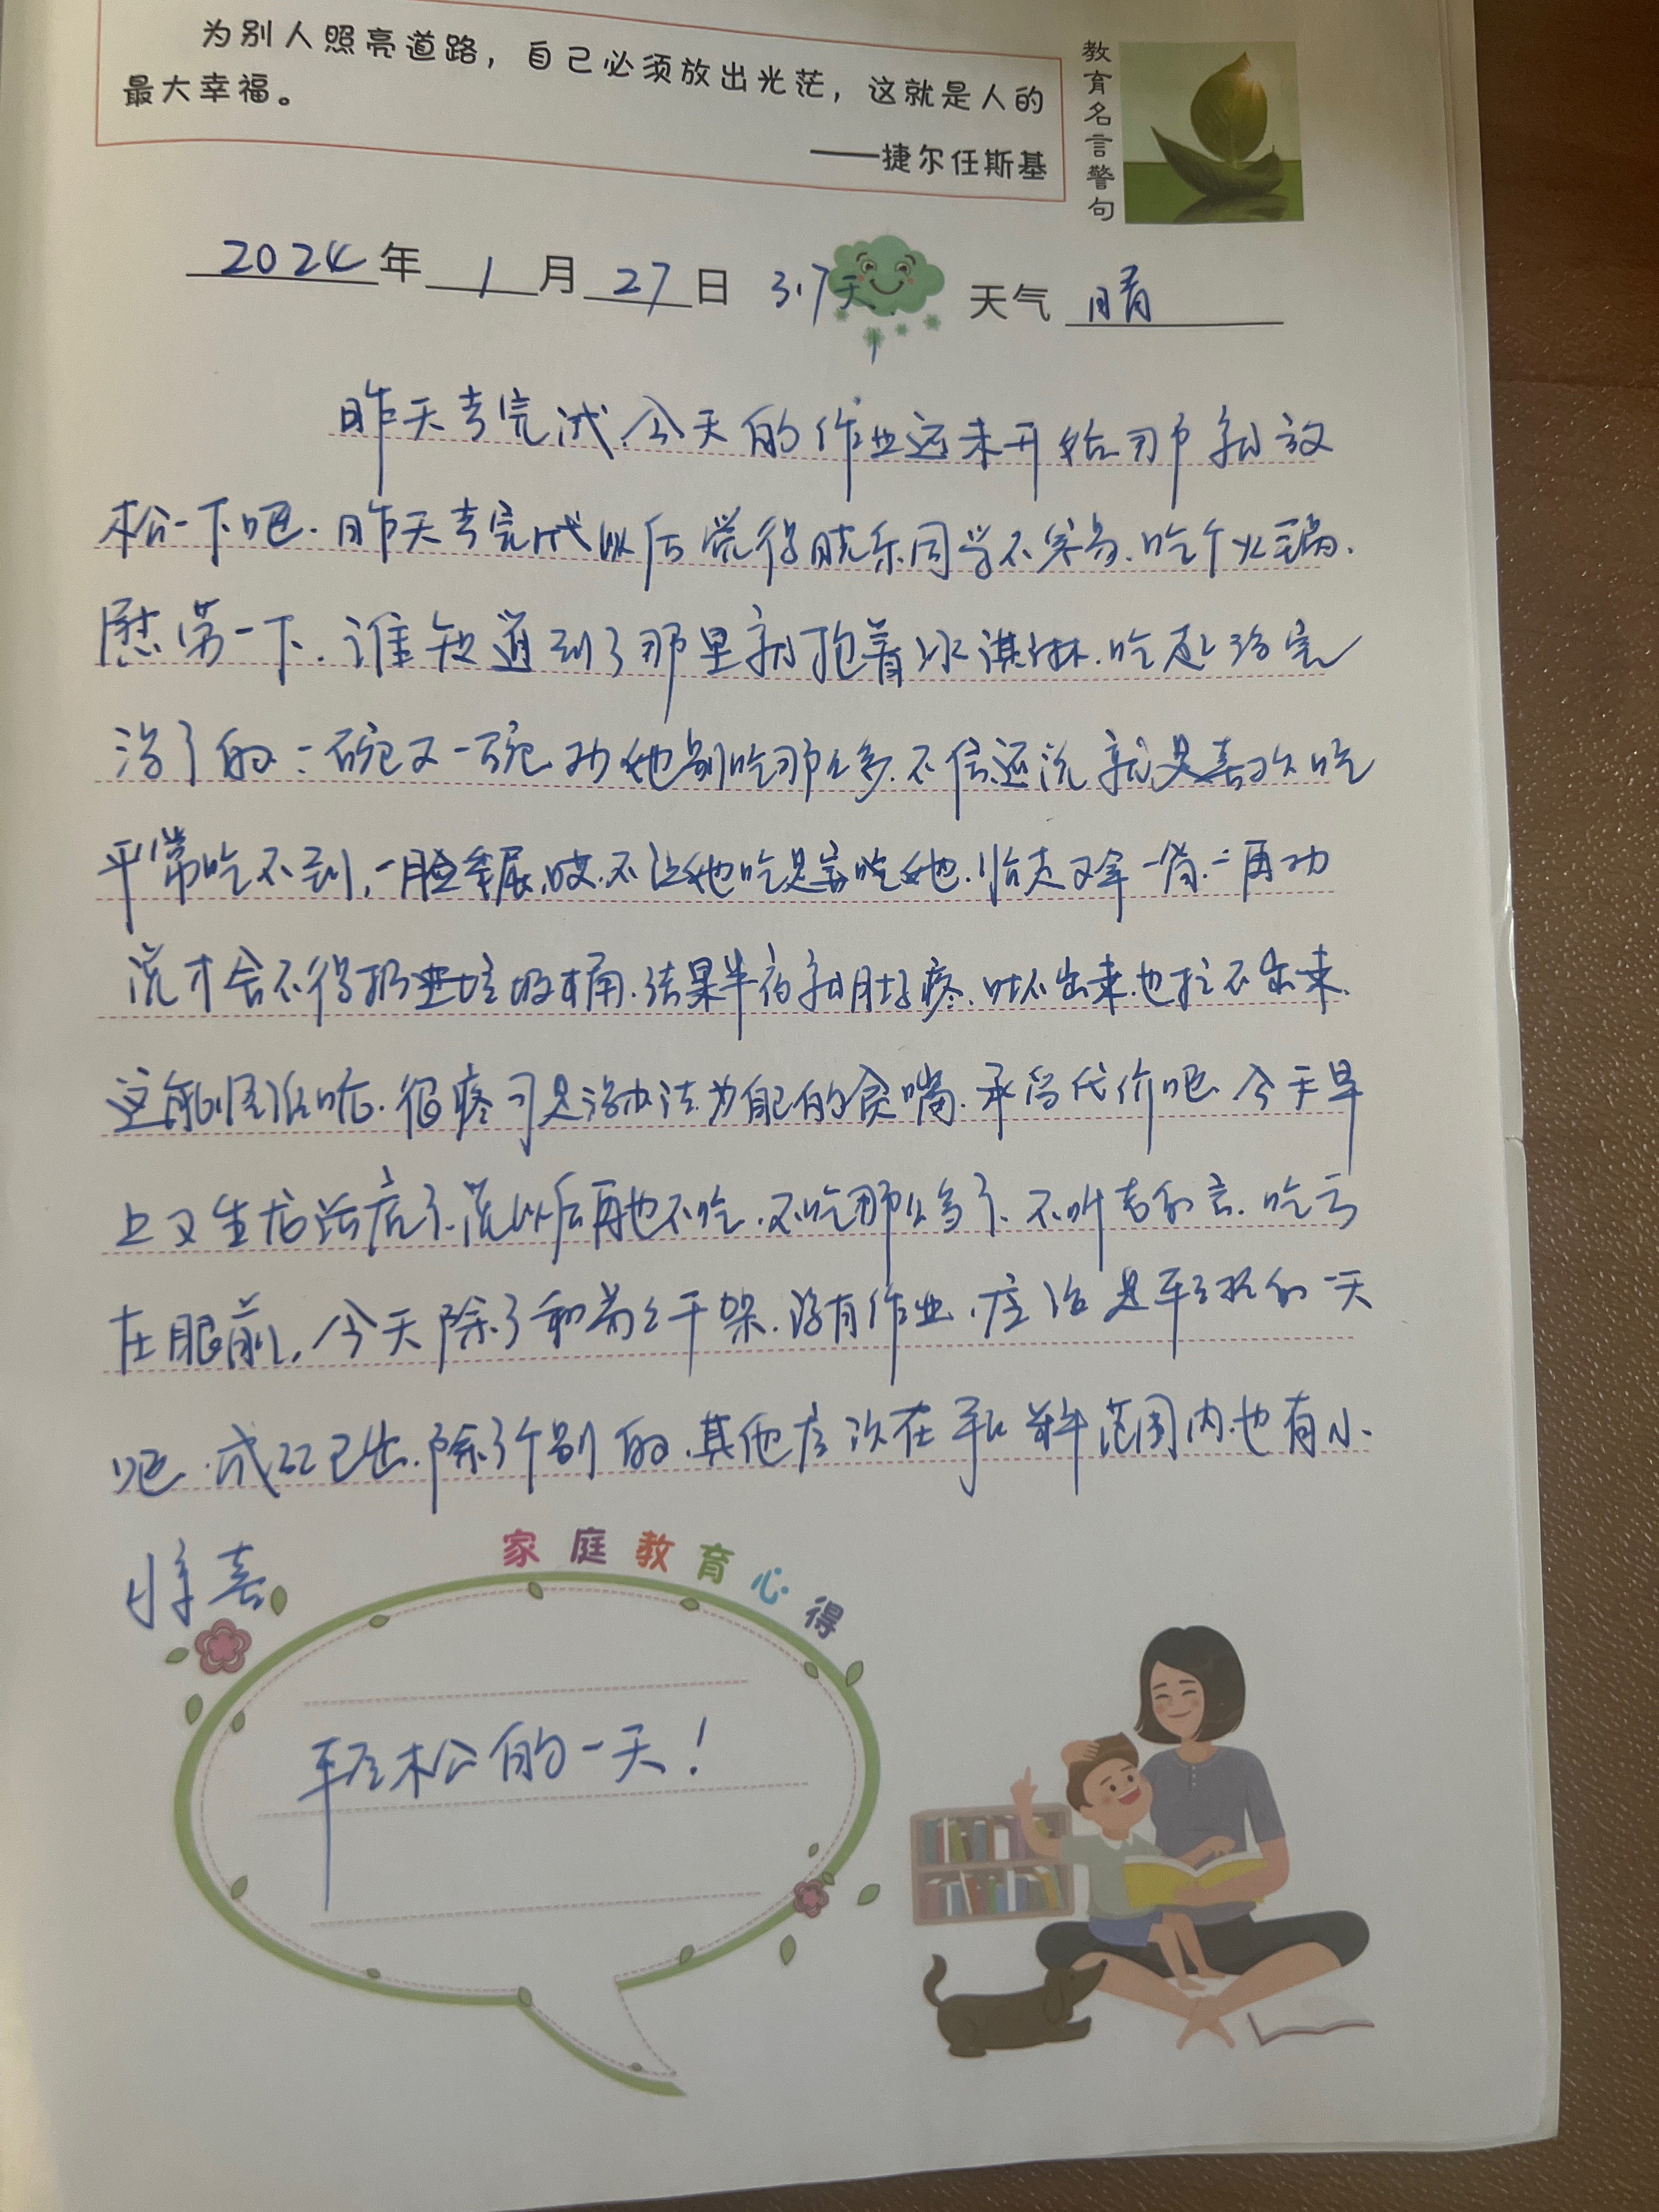 为别人照亮道路，自己必须放出光茫，这就是人的
最大幸福。
——捷尔任斯基
教育名言警句
2024年1月27日 317天 天气 晴
昨天考完试.今天的作业还未开始那就放
松一下吧.昨天考完试以后觉得晓乐同学不容易.吃个火锅.
慰劳一下.谁知道到了那里就抱着冰淇淋.吃起没完
没了的:一碗又一碗.劝她别吃那么多.不信还说就是喜欢吃
平常吃不到,一脸委屈,哎.不让她吃是害她.临走又拿一筒.一再劝
说才舍不得扔进垃圾桶.结果半夜就肚子疼.吐不出来.也拉不出来.
这能怪谁呢.很疼可是没办法.为自己的贪嘴.承当代价吧.今天早
上又生龙活虎了.说以后再也不吃.不吃那么多了.不听老人言.吃亏
在眼前,今天除了和弟弟干架.没有作业.应该是轻松的一天
吧.成绩已出.除了个别的.其他应该在和解范围内.也有小.
惊喜
家庭教育心得
轻松的一天!